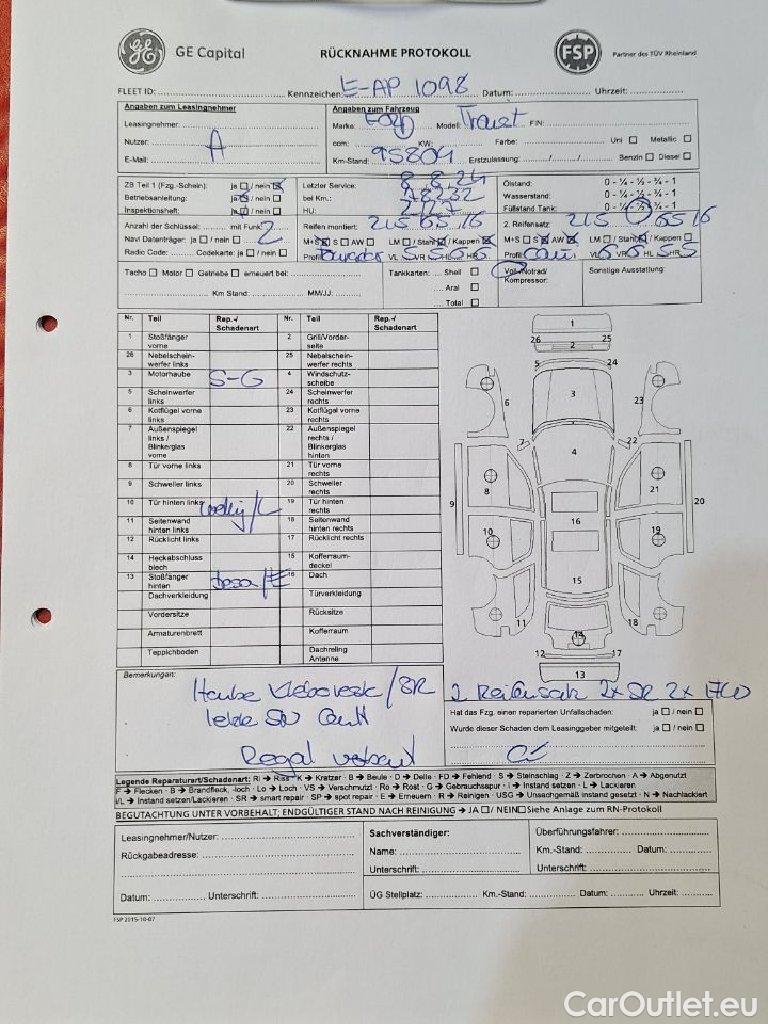 GE Capital
RÜCKNAHME PROTOKOLL
FSP
Partner des TÜV Rheinland
FLEET ID: Kennzeichen: E-AP 1098 Datum: Uhrzeit:
Angaben zum Leasingnehmer
Leasingnehmer:
Nutzer: A
E-Mail:
Angaben zum Fahrzeug
Marke: Ford Modell: Transit FIN:
ccm: KW: Farbe: Uni Metallic
Km-Stand: 95804 Erstzulassung: / / Benzin Diesel
ZB Teil 1 (Fzg.-Schein): ja / nein
Betriebsanleitung: ja / nein
Inspektionsheft: ja / nein
Letzter Service: 8.8.24
bei Km.:
HU:
Ölstand: 0 - ¼ - ½ - ¾ - 1
Wasserstand: 0 - ¼ - ½ - ¾ - 1
Füllstand Tank: 0 - ¼ - ½ - ¾ - 1
Anzahl der Schlüssel: mit Funk: 2
Navi Datenträger: ja / nein
Radio Code: Codekarte: ja / nein
Reifen montiert: 215 65 16
M+S S AW LM / Stahl / Kappen
Profil VL 5 VR 5 HL 6 HR 6
2. Reifensatz: 215 65 16
M+S S AW LM / Stahl / Kappen
Profil VL 6 VR 6 HL 5 HR 5
Tacho Motor Getriebe erneuert bei:
Km Stand: MM/JJ:
Tankkarten: Shell
Aral
Total
Voll-/Notrad/
Kompressor:
Sonstige Ausstattung:
Nr. Teil Rep.-/ Schadenart Nr. Teil Rep.-/ Schadenart
1 Stoßfänger vorne 2 Grill/Vorder-seite
26 Nebelschein-werfer links 25 Nebelschein-werfer rechts
3 Motorhaube S-G 4 Windschutz-scheibe
5 Scheinwerfer links 24 Scheinwerfer rechts
6 Kotflügel vorne links 23 Kotflügel vorne rechts
7 Außenspiegel links / Blinkerglas vorne 22 Außenspiegel rechts / Blinkerglas hinten
8 Tür vorne links 21 Tür vorne rechts
9 Schweller links 20 Schweller rechts
10 Tür hinten links 19 Tür hinten rechts
11 Seitenwand hinten links 18 Seitenwand hinten rechts
12 Rücklicht links 17 Rücklicht rechts
14 Heckabschluss blech 15 Kofferraum-deckel
13 Stoßfänger hinten 16 Dach
Dachverkleidung Türverkleidung
Vordersitze Rücksitze
Armaturenbrett Kofferraum
Teppichboden Dachreling Antenne
1
26 2 25
5 24
3
6 23
7 22
4
8 21
9 20
16
10 19
15
11 18
14
12 17
13
Bemerkungen:
Haube /SR
Regal verbaut
2 Reifensatz 2x SR 2x
Hat das Fzg. einen reparierten Unfallschaden: ja / nein
Wurde dieser Schaden dem Leasinggeber mitgeteilt: ja / nein
Legende Reparaturart/Schadenart: RI → Riss · K → Kratzer · B → Beule · D → Delle · FD → Fehlend · S → Steinschlag · Z → Zerbrochen · A → Abgenutzt
F → Flecken · B → Brandfleck, -loch · Lo → Loch · VS → Verschmutzt · Ro → Rost · G → Gebrauchsspur · I → Instand setzen · L → Lackieren
I/L → Instand setzen/Lackieren · SR → smart repair · SP → spot repair · E → Erneuern · R → Reinigen · USG → Unsachgemäß instand gesetzt · N → Nachlackiert
BEGUTACHTUNG UNTER VORBEHALT; ENDGÜLTIGER STAND NACH REINIGUNG → JA / NEIN Siehe Anlage zum RN-Protokoll
Leasingnehmer/Nutzer:
Rückgabeadresse:
Datum: Unterschrift:
Sachverständiger:
Name:
Unterschrift:
Überführungsfahrer:
Km.-Stand: Datum:
Unterschrift:
ÜG Stellplatz: Km.-Stand: Datum: Uhrzeit:
FSP 2015-10-07
CarOutlet.eu